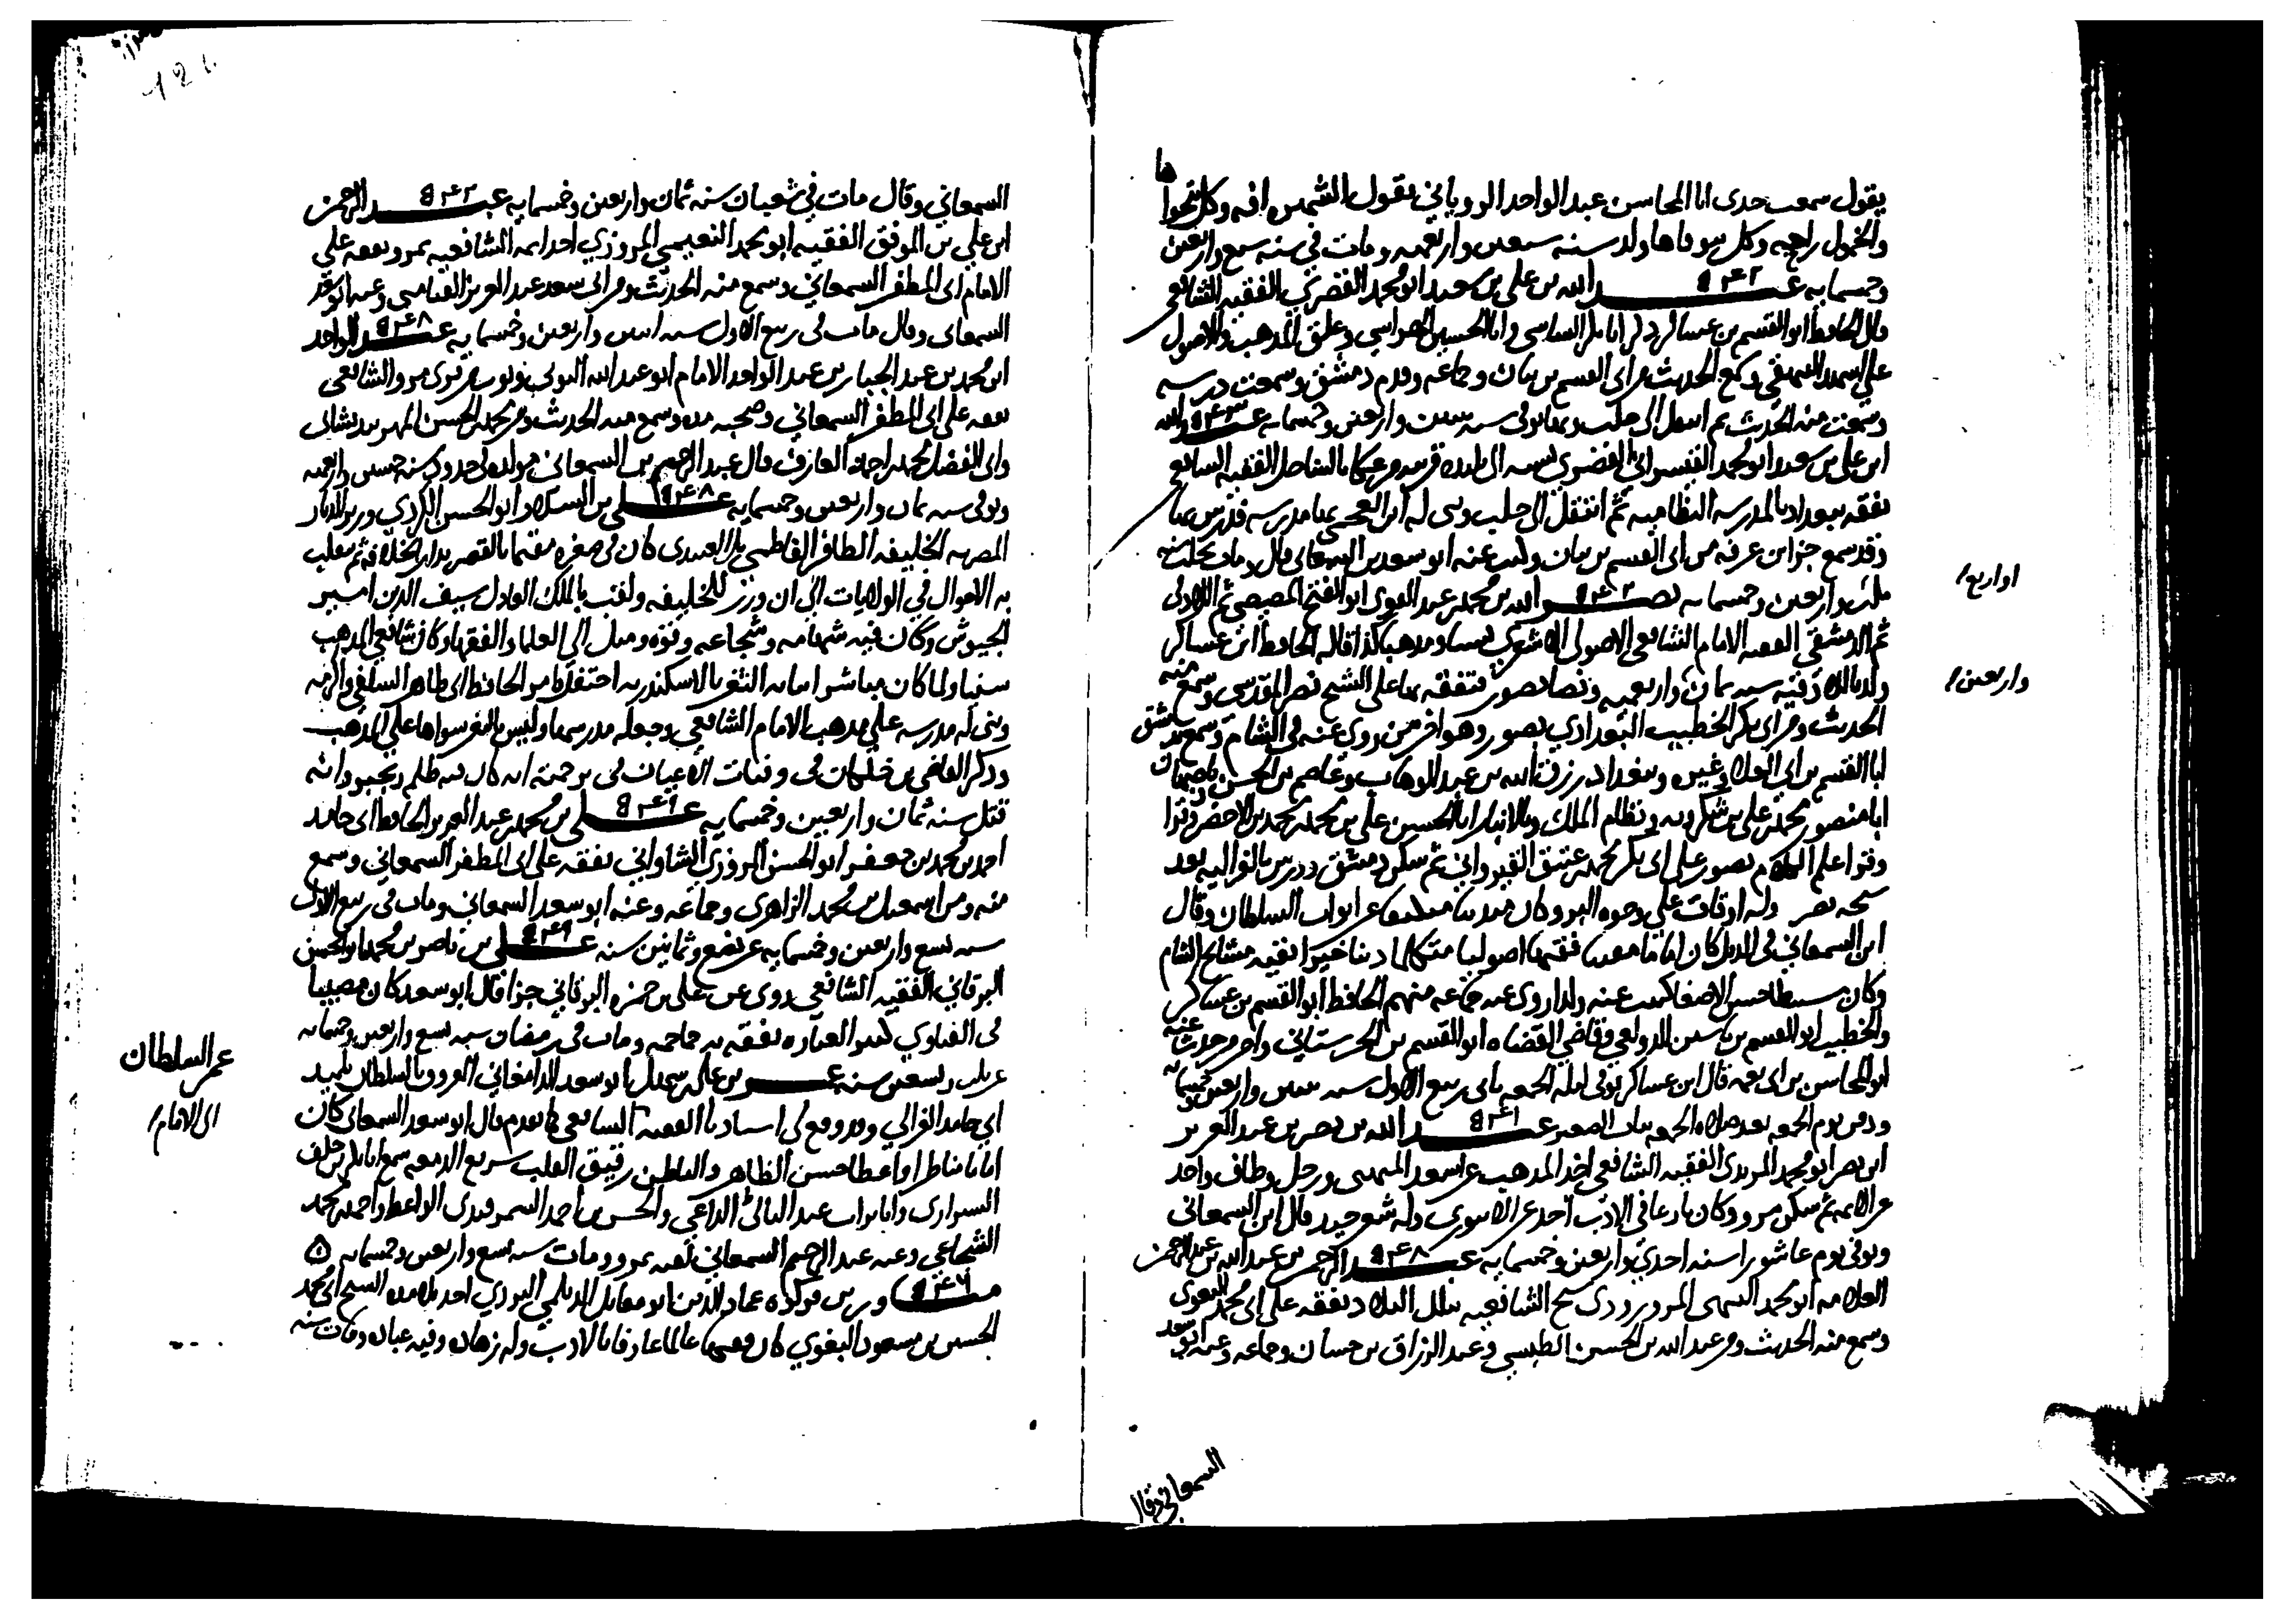 يقول سمعت جدى ابا المحاسن عبد الواحد الرويانى يقول الشهره افه وكل يتحراها
والخمول راحه وكل يتوقاها ولد سنه سبعين واربعمه ومات فى سنه سبع واربعين
وخمسمايه عبد الله بن على بن سعيد ابو محمد القصري الفقيه الشافعى
قال الحافظ ابو القسم بن عساكر ادرك ابا بكر الشاشى وابا الحسين الهراسي وعلق المذهب والاصول
على اسعد الميهنى وسمع الحديث من ابى القسم بن بيان وجماعه وقدم دمشق وسمعت درسه
وسمعت منه الحديث ثم انتقل الى حلب وبها توفى سنه اثنتين واربعين وخمسمايه عبد الله
ابن على بن سعيد ابو محمد القيسرانى القصري نسبه الى بليده قرب من عكا بالساحل الفقيه الشافعى
تفقه ببغداد بالمدرسه النظاميه ثم انتقل الى حلب وبنى له ابن العجمى بها مدرسه فدرس بها
وقد سمع جزء ابن عرفه من ابى القسم بن بيان وكتب عنه ابو سعد بن السمعانى قال ومات بحلب سنه
ثلث واربعين وخمسمايه نصر الله بن محمد بن عبد القوى ابو الفتح المصيصى ثم اللاذقى
او اربع
ثم الدمشقى الفقيه الامام الشافعى الاصولى الاشعرى نسبا ومذهبا كذا قاله الحافظ ابن عساكر
ولد باللاذقيه سنه ثمان واربعميه ونشا بصور وتفقه بها على الشيخ نصر المقدسى وسمع منه
واربعين
الحديث ومن ابى بكر الخطيب البغدادي بصور وهو اخر من روى عنه فى الشام وسمع بدمشق
ابا القسم بن ابى العلا وغيره وببغداد رزق الله بن عبد الوهاب وعاصم بن الحسن وباصبهان
ابا منصور محمد بن على بن شكرويه ونظام الملك وبالانبار ابا الحسين على بن محمد بن محمد بن الاخضر وقرا
وقرا علم الكلام بصور على ابى بكر محمد بن عتيق القيرواني ثم سكن دمشق ودرس بالغزاليه بعد
شيخه نصر وله اوقاف على وجوه البر وكان متدينا منقبضا عن ابواب السلطان وقال
ابن السمعاني فى الذيل كان اماما مفتيا فقيها اصوليا متكلما دينا خيرا بقيه مشايخ الشام
وكان متيقظا حسن الاصغا كتبت عنه ولد ا روى عنه جماعه منهم الحافظ ابو القسم بن عساكر
والخطيب ابو القسم بن ياسين الدولعى وقاضى القضاه ابو القسم بن الحرستاني واخر من حدث عنه
ابو المحاسن بن ابى لقمه قال ابن عساكر توفى ليله الجمعه ثانى ربيع الاول سنه اثنتين واربعين وخمسمايه
ودفن يوم الجمعه بعد صلاه الجمعه بباب الصغير عبد الله بن نصر بن عبد العزيز
ابن نصر ابو محمد المرندى الفقيه الشافعى اخذ المذهب عن اسعد الميهنى ورحل وطاف واخذ
عن الايمه ثم سكن مرو وكان بارعا فى الادب اخذ عن الابيوردى وله شعر جيد قال ابن السمعانى
وتوفى يوم عاشورا سنه احدى واربعين وخمسمايه عبد الرحمن بن عبد الله بن عبد الرحمن
العلامه ابو محمد النيهى المروروذى شيخ الشافعيه بتلك البلاد تفقه على ابى محمد البغوى
وسمع منه الحديث ومن عبد الله بن الحسين الطبسي وعبد الرزاق بن حسان وجماعه وعنه ابو سعد
السمعانى وقال
السمعاني وقال مات فى شعبان سنه ثمان واربعين وخمسمايه عبد الرحمن
ابن على بن الموفق الفقيه ابو محمد النعيمي المروزي احد ايمه الشافعيه بمرو تفقه على
الامام ابى المظفر السمعاني وسمع منه الحديث ومن ابى سعد عبد العزيز القاينى وعنه ابو سعد
السمعانى وقال مات فى ربيع الاول سنه اثنتين واربعين وخمسمايه عبد الواحد
ابن محمد بن عبد الجبار بن عبد الواحد الامام ابو عبد الله التوثى وتوث من قرى مرو الشافعى
تفقه على ابى المظفر السمعاني وصحبه مده وسمع منه الحديث ومن محمد بن الحسن المهربندقشانى
وابى الفضل محمد بن احمد العارف قال عبد الرحيم بن السمعانى مولده فى حدود سنه خمسين واربعمه
وتوفى سنه ثمان واربعين وخمسمايه على بن السلار ابو الحسن الكردي وزير الديار
المصريه للخليفه الظافر الفاطمى العبيدى كان فى صغره مقيما بالقصر بدار الخلافه ثم تقلبت
به الاحوال في الولايات الى ان وزر للخليفه ولقب بالملك العادل سيف الدين امير
الجيوش وكان فيه شهامه وشجاعه وقوه وميل الى العلما والفقها وكان شافعى المذهب
سنيا ولما كان مباشرا نيابه الثغر بالاسكندريه احتفل بامر الحافظ ابى طاهر السلفى واكرمه
وبنى له مدرسه على مذهب الامام الشافعي وجعله مدرسها وليس بالثغر سواها على المذهب
وذكر القاضى بن خلكان فى وفيات الاعيان فى ترجمته انه كان فيه ظلم وجبروت وانه
قتل سنه ثمان واربعين وخمسمايه على بن محمد بن عبد العزيز الحافظ ابى حامد
احمد بن محمد بن جعفر ابو الحسن المروزي الشاواني تفقه على ابى المظفر السمعاني وسمع
منه ومن اسمعيل بن محمد الزاهرى وجماعه وعنه ابو سعد السمعاني ومات فى ربيع الاول
سنه تسع واربعين وخمسمايه عن بضع وثمانين سنه على بن ناصر بن محمد ابو الحسن
البوقاني الفقيه الشافعي روى عن على بن حمزه البوقاني جزا قال ابو سعد كان مصيبا
فى الفتاوي كثير العباده تفقه به جماعه ومات فى رمضان سنه تسع واربعين وخمسمايه
عن نيف وسبعين سنه عمر بن على بن سهل ابو سعد الدامغاني المعروف بالسلطان تلميذ
عمر السلطان
ابي حامد الغزالي وقد وقع لى اسناد بالفقيه الشافعى كما تقدم قال ابو سعد السمعانى كان
الى الامام
اماما مناظرا واعظا حسن الظاهر والباطن رفيق القلب سريع الدمعه سمع ابا بكر بن خلف
الشيرازى وابا تراب عبد الباقى المراغي والحسن بن احمد السمرقندى الواعظ واحمد بن محمد
الشجاعي وعنه عبد الرحيم السمعاني لقيه بمرو ومات سنه تسع واربعين وخمسمايه
بن فركوه عماد الدين ابو مقاتل الديلمى اليزدي احد تلامذه الشيخ ابى محمد
الحسين بن مسعود البغوي كان فقيها عالما عارفا بالادب وله زهاده وفيه عباده ومات سنه